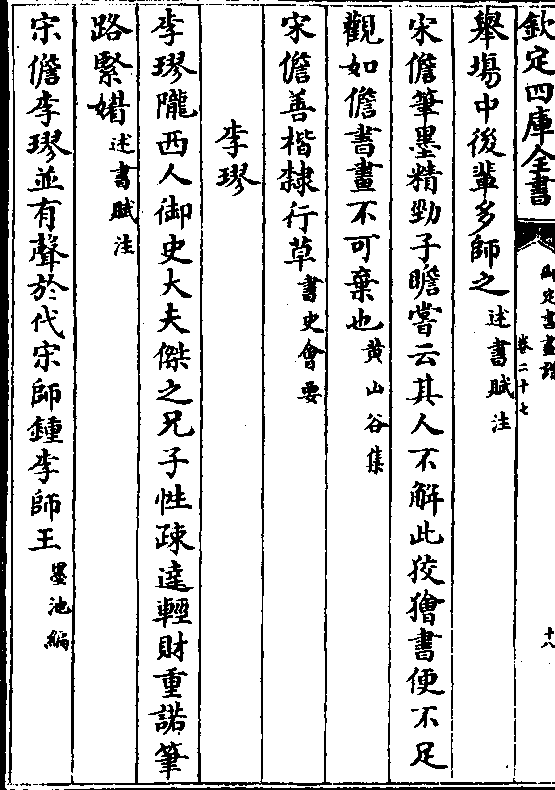 欽定四庫全書
御定書畫譜
卷二十七
十八
舉塲中後輩多師之述書賦注
宋儋筆墨精勁子瞻嘗云其人不解此狡獪書便不足
觀如儋書畫不可棄也黄山谷集
宋儋善楷隸行草書史會要
李璆
李璆隴西人御史大夫傑之兄子性疎達輕財重諾筆
路緊媘述書賦注
宋儋李璆並有聲於代宋師鍾李師王墨池編